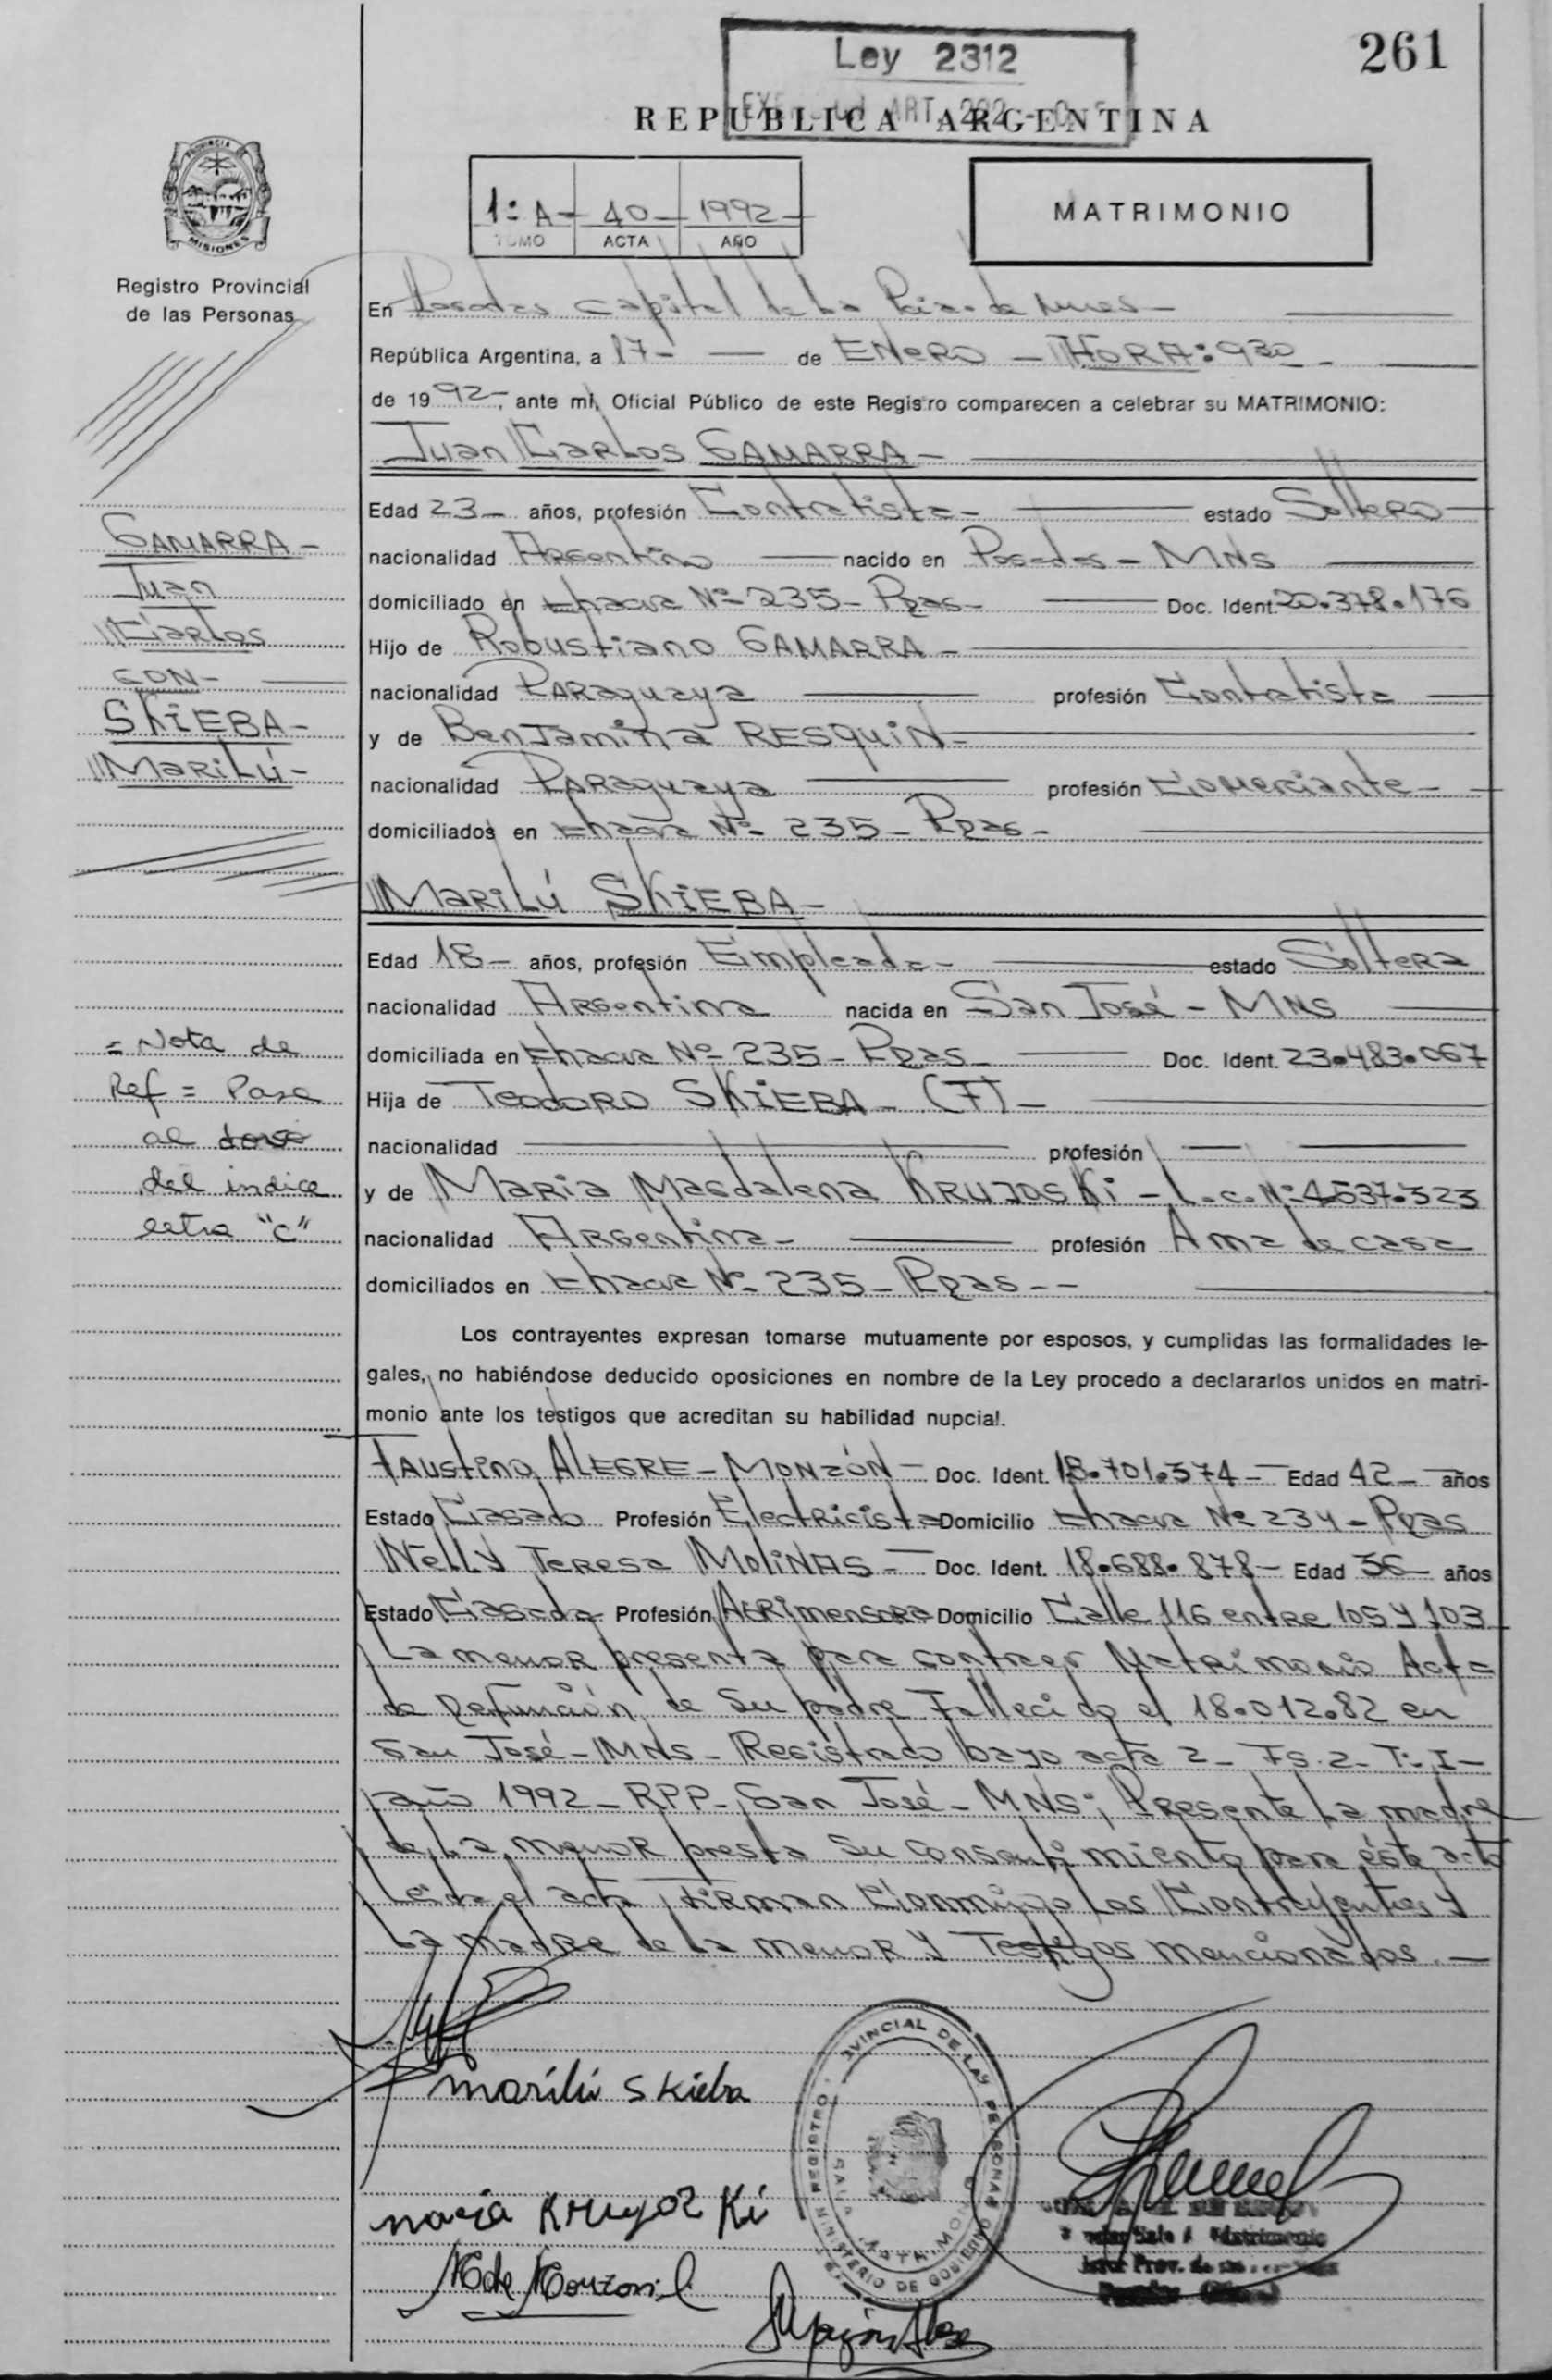 261
Ley 2312
ART. 292
REPUBLICA ARGENTINA
PROVINCIA DE
MISIONES
Registro Provincial
de las Personas
1º A- 40- 1992-
TOMO ACTA AÑO
MATRIMONIO
En Posadas Capital de La Pcia. de Mnes-
República Argentina, a 17- de ENERO - HORA: 930-
de 1992-, ante mí, Oficial Público de este Registro comparecen a celebrar su MATRIMONIO:
Juan Carlos GAMARRA-
Edad 23- años, profesión Contratista- estado Soltero
nacionalidad Argentino nacido en Posadas- MNS
domiciliado en Chacra Nº 235- Pdas- Doc. Ident. 20.378.176
Hijo de Robustiano GAMARRA-
nacionalidad PARAguaya profesión Contratista
y de BenJamina RESQUIN-
nacionalidad PARAguaya profesión Comerciante-
domiciliados en Chacra Nº 235- Pdas-
GAMARRA-
Juan
Carlos
CON-
SKIEBA-
MARILÚ-
MARILÚ SKIEBA-
Edad 18- años, profesión Empleada- estado Soltera
nacionalidad Argentina nacida en San José- MNS
domiciliada en Chacra Nº 235- Pdas- Doc. Ident. 23.483.067
Hija de Teodoro SKIEBA- (F)-
nacionalidad profesión
y de Maria Magdalena KRUJOSKi- L.c.Nº 4537.323
nacionalidad Argentina- profesión Ama de casa
domiciliados en Chacra Nº 235- Pdas--
= Nota de
Ref = Pase
al dorso
del indice
letra "C"
Los contrayentes expresan tomarse mutuamente por esposos, y cumplidas las formalidades le-
gales, no habiéndose deducido oposiciones en nombre de la Ley procedo a declararlos unidos en matri-
monio ante los testigos que acreditan su habilidad nupcial.
FAUSTINO ALEGRE- MONZÓN- Doc. Ident. 18.701.574- Edad 42- años
Estado Casado Profesión Electricista Domicilio Chacra Nº 234- Pdas
Nelly Teresa MOLINAS- Doc. Ident. 18.688.878- Edad 36- años
Estado Casada Profesión Agrimensora Domicilio Calle 116 entre 105 y 103
La menor presenta para contraer Matrimonio Acta
de Defunción, de Su padre Fallecido el 18.012.82 en
San José- MNS- Registrado bajo acta 2- Fs.2- Tº I-
año 1992- RPP- San José- MNS; Presente La madre
de La menor presta Su consentimiento para éste acto
Leída el acta Firman Conmigo Los Contrayentes y
La madre de La menor y Testigos mencionados.-
marilú Skieba
REGISTRO PROVINCIAL DE LAS PERSONAS
MINISTERIO DE GOBIERNO
SALA MATRIMONIO
maria Krujoz Ki
N de Monzon